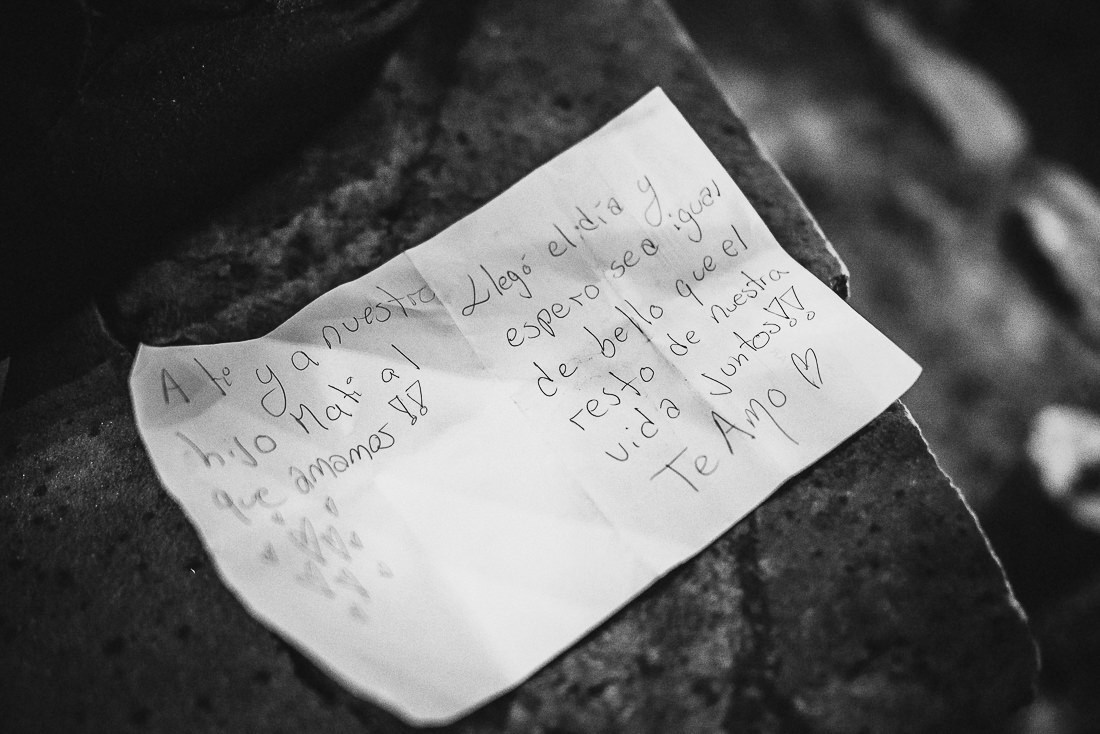 A ti y a nuestro
hijo Mati al
que amamos!!
Llegó el día y
espero sea igual
de bello que el
resto de nuestra
vida Juntos!!
Te Amo ♡